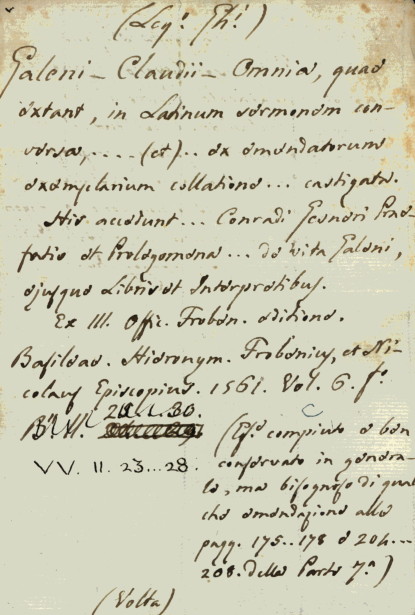 (Leg.ª Gh.ª)
Galeni - Claudii - Omnia, quae
extant, in Latinum sermonem con-
versa, .... (et) .. ex emendatorum
exemplarium collatione ... castigata.
His accedunt ... Conradi Gesneri Prae-
fatio et Prologomena ... de vita Galeni,
ejusque Libris et Interpretibus.
Ex III. Offic. Froben. editione.
Basileae. Hieronym. Frobenius, et Ni-
colaus Episcopius. 1561. Vol. 6. f.º
30.
VV. 11. 23...28.
(Es.º compiuto e ben
conservato in genera-
le, ma bisognoso di qual
che emendazione alle
pagg. 175..178 e 204...
208. della Parte 7.ª)
(Volta)